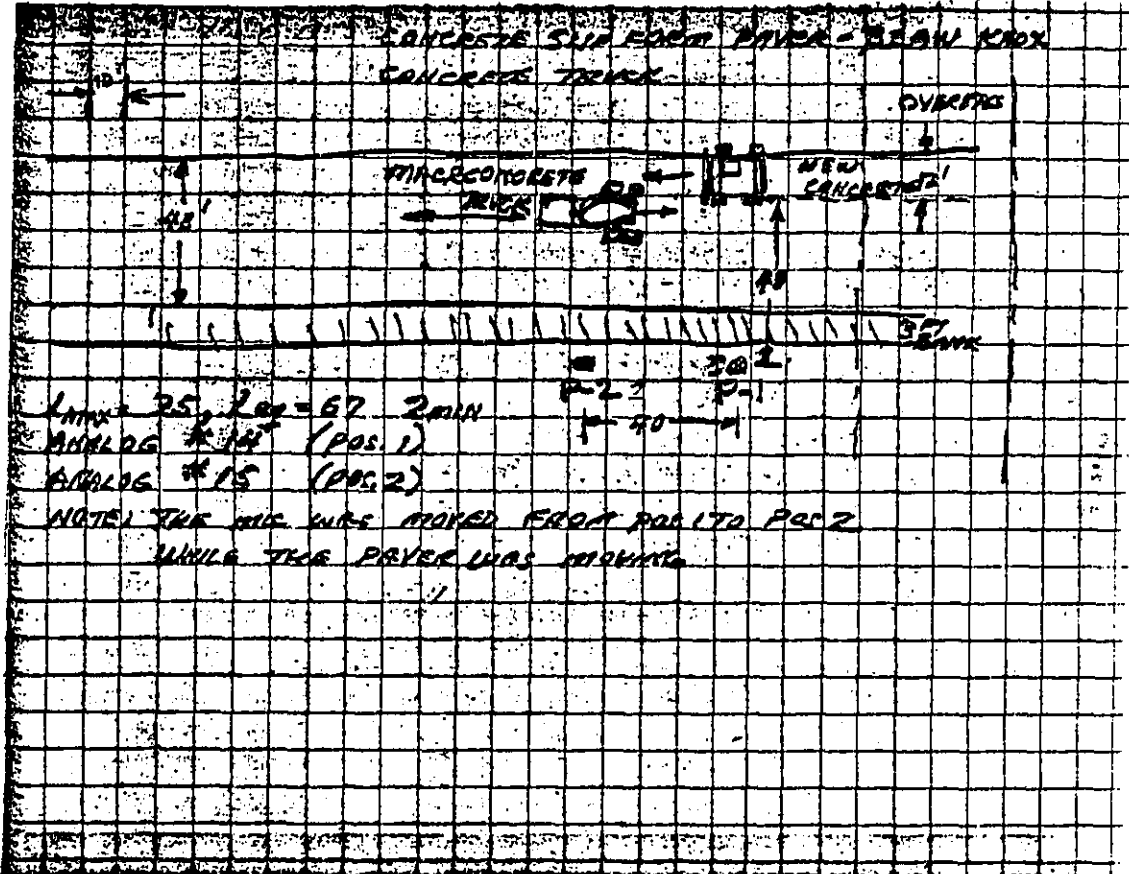 CONCRETE SLIP FORM PAVER - BLAW KNOX
CONCRETE TRUCK
10'
OVERPASS
NEW
CONCRETE 12'
48'
48
3 FT
BANK
P-2
P-1
40
LMAX = 75, Leq = 67 2 MIN
ANALOG # 14 (POS. 1)
ANALOG # 15 (POS. 2)
NOTE: THE MIC WAS MOVED FROM POS 1 TO POS 2
WHILE THE PAVER WAS MOVING